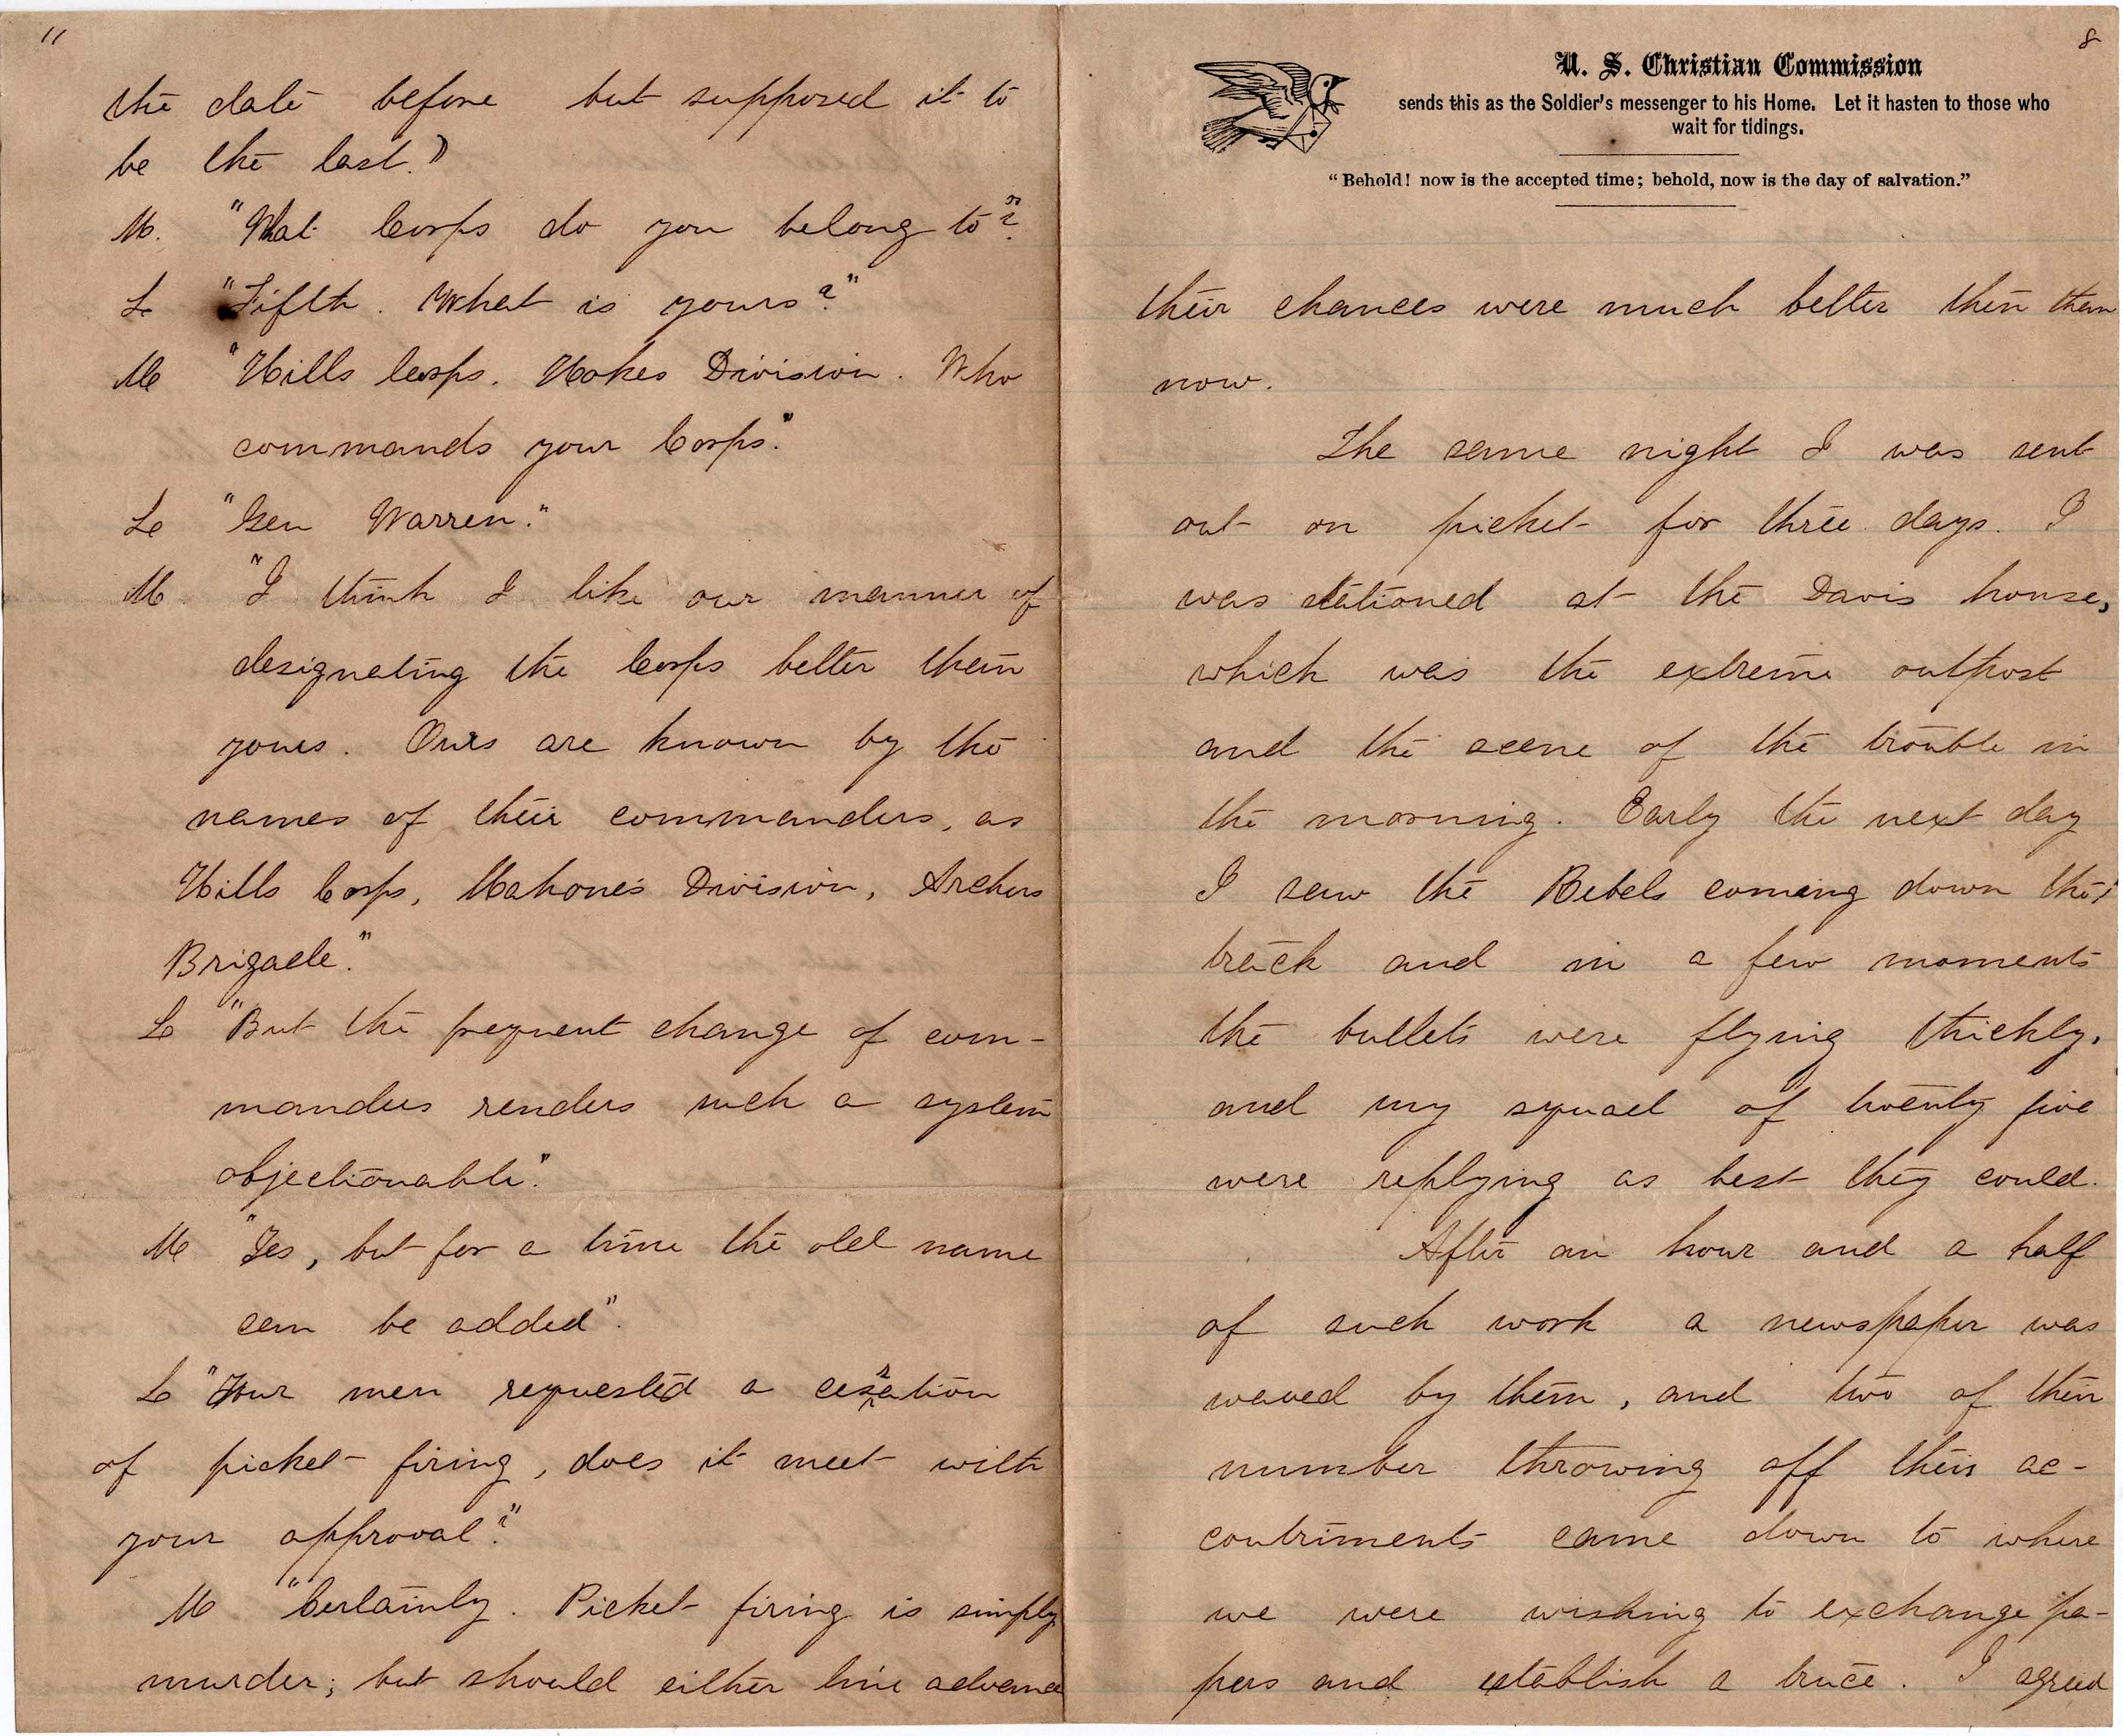 11
the date before but supposed it to
be the last.)
M. "What Corps do you belong to"?
L "Fifth. What is yours?"
M "Hills Corps. Hokes Division. Who
commands your Corps."
L "Gen Warren."
M "I think I like our manner of
designating the Corps better than
yours. Ours are known by the
names of their commanders, as
Hills Corps, Mahone's Division, Archers
Brigade."
L "But the frequent change of com-
manders renders such a system
objectionable".
M "Yes, but for a time the old name
can be added".
L "Your men requested a cessation
of picket firing, does it meet with
your approval?"
M "Certainly. Picket firing is simply
murder; but should either line advance
8
U. S. Christian Commission
sends this as the Soldier's messenger to his Home. Let it hasten to those who
wait for tidings.
"Behold! now is the accepted time; behold, now is the day of salvation."
their chances were much better then than
now.
The same night I was sent
out on picket for three days. I
was stationed at the Davis house,
which was the extreme outpost
and the scene of the trouble in
the morning. Early the next day
I saw the Rebels coming down the
track and in a few moments
the bullets were flying thickly,
and my squad of twenty five
were replying as best they could.
After an hour and a half
of such work a newspaper was
waved by them, and two of their
number throwing off their ac-
coutriments came down to where
we were wishing to exchange pa-
pers and establish a truce. I agreed